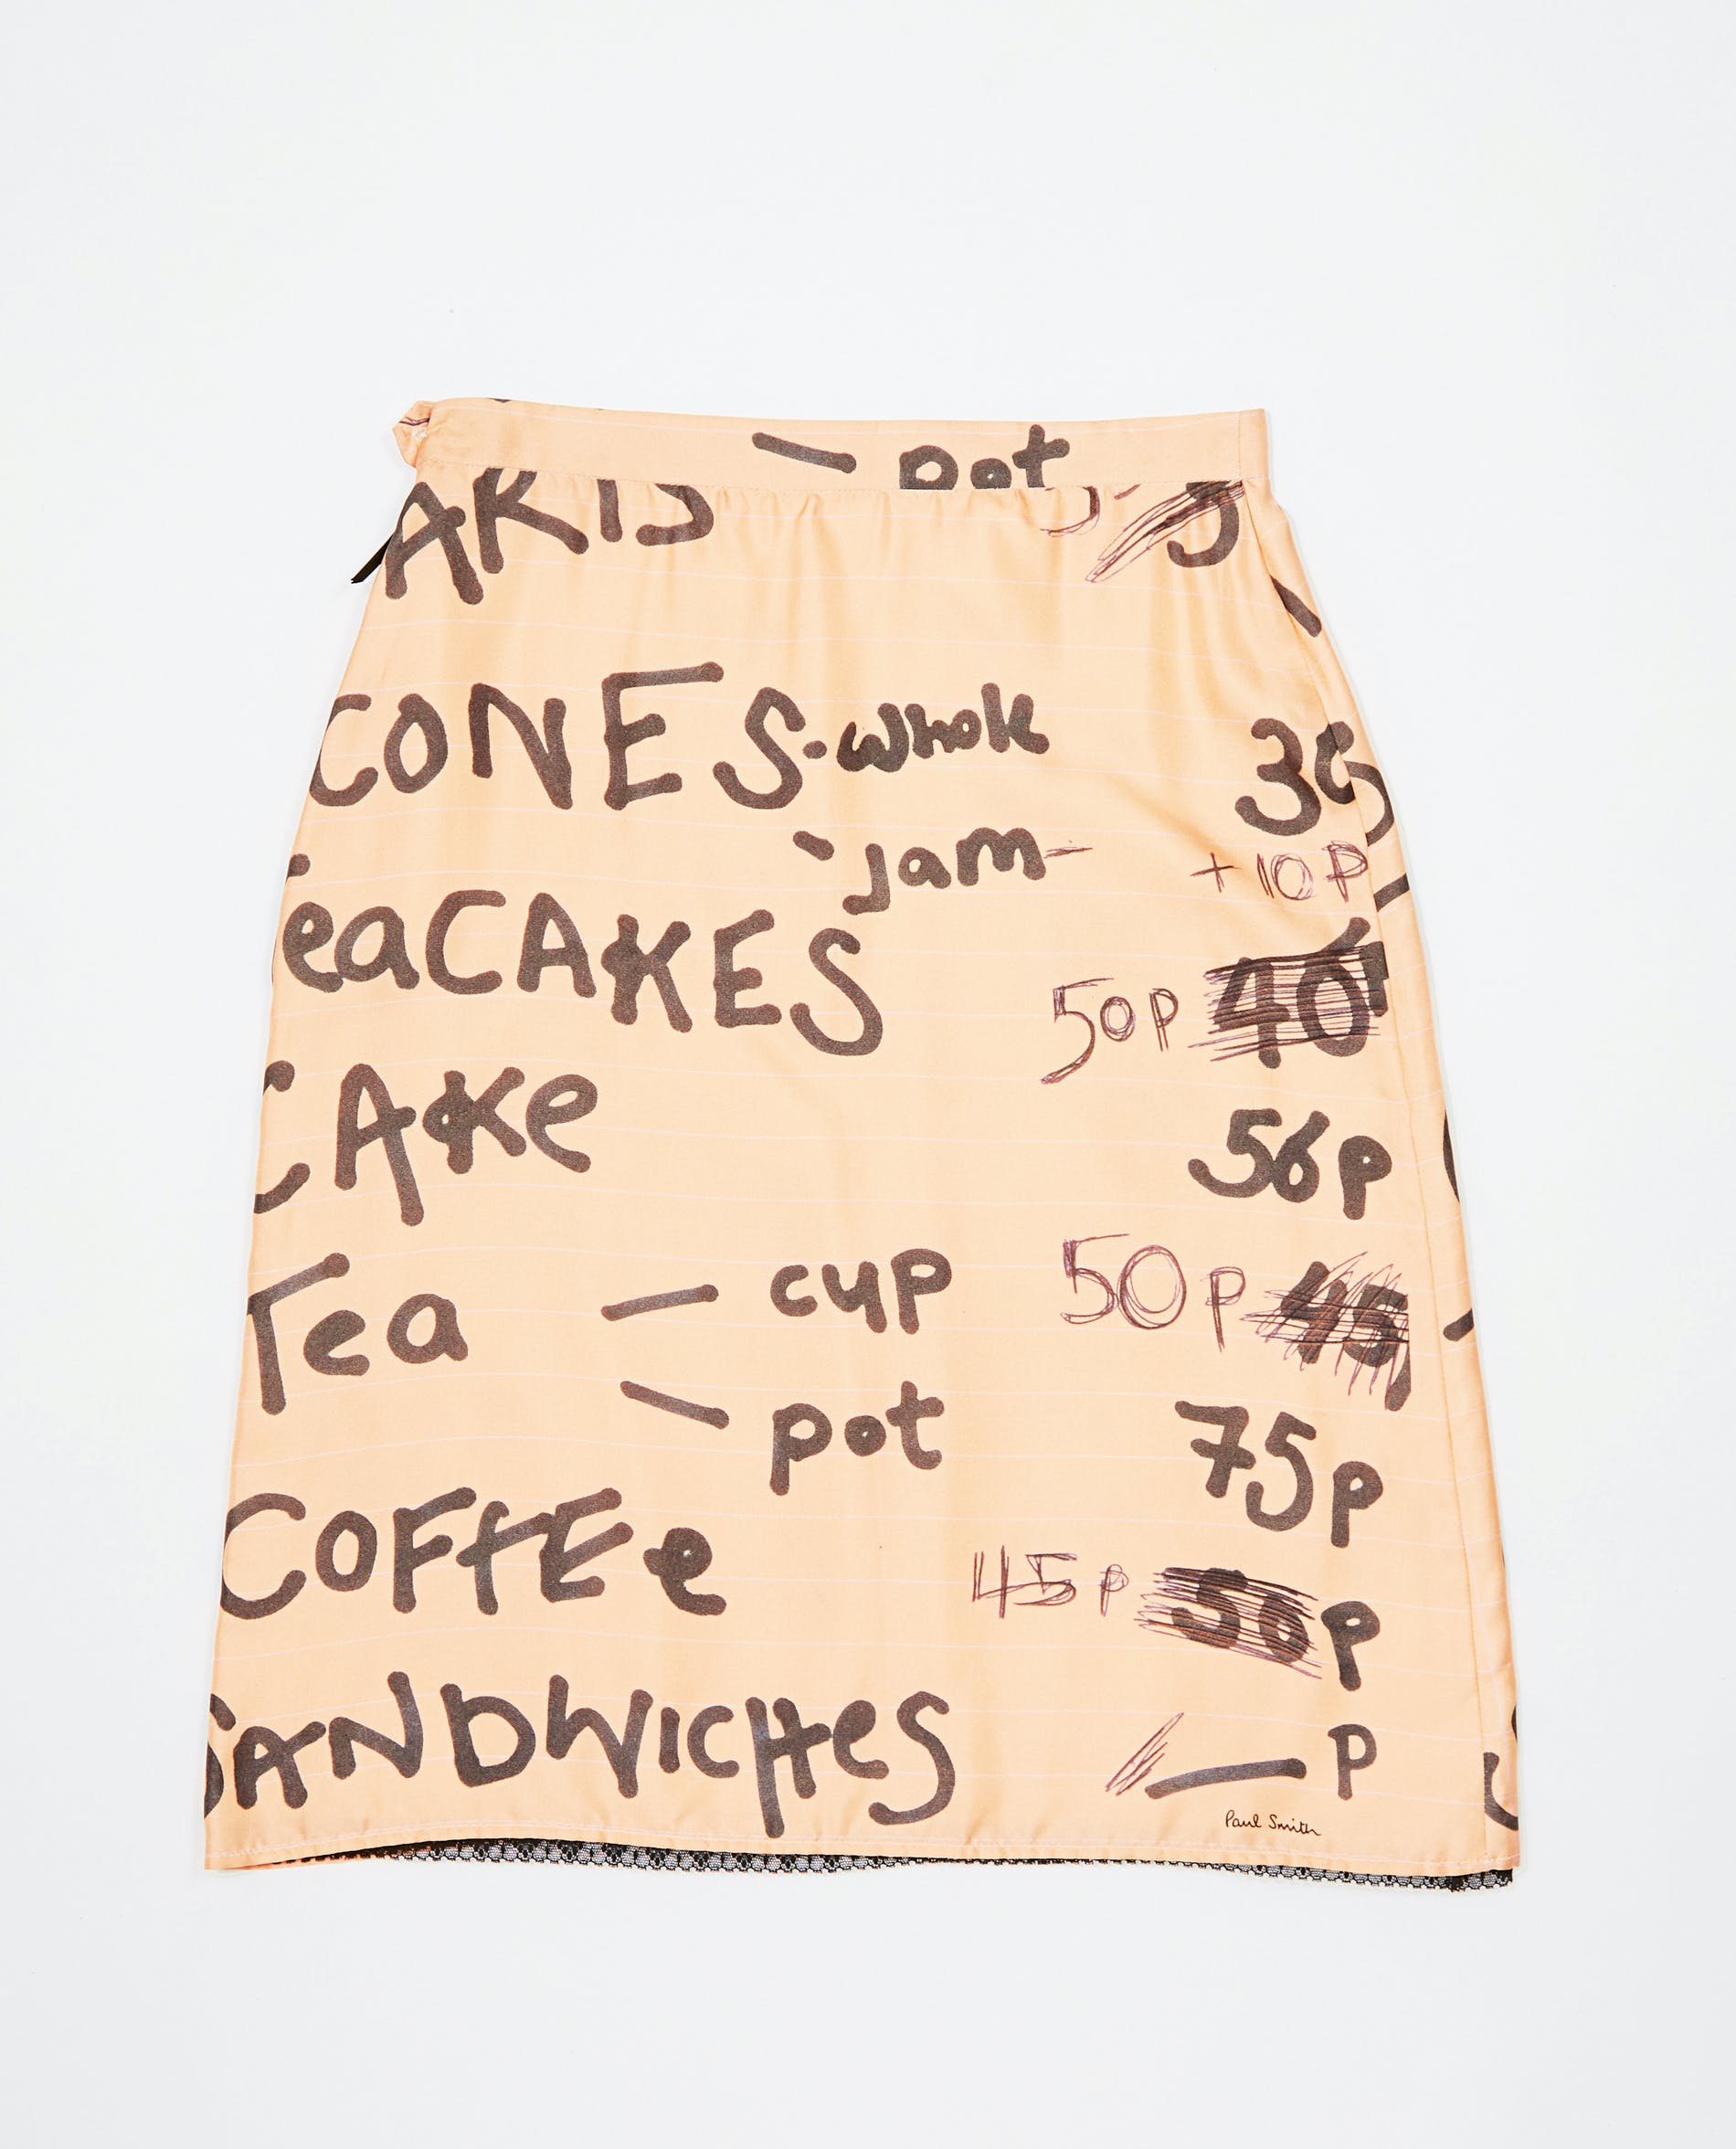 — pot
ARTS
CONES - whole 36
- jam - + 10 p
TeaCAKES 50p 40
CAKe 56p
Tea — cup 50p 45
— pot 75p
COFFEe 45p 56 p
SANDWICHeS — p
Paul Smith